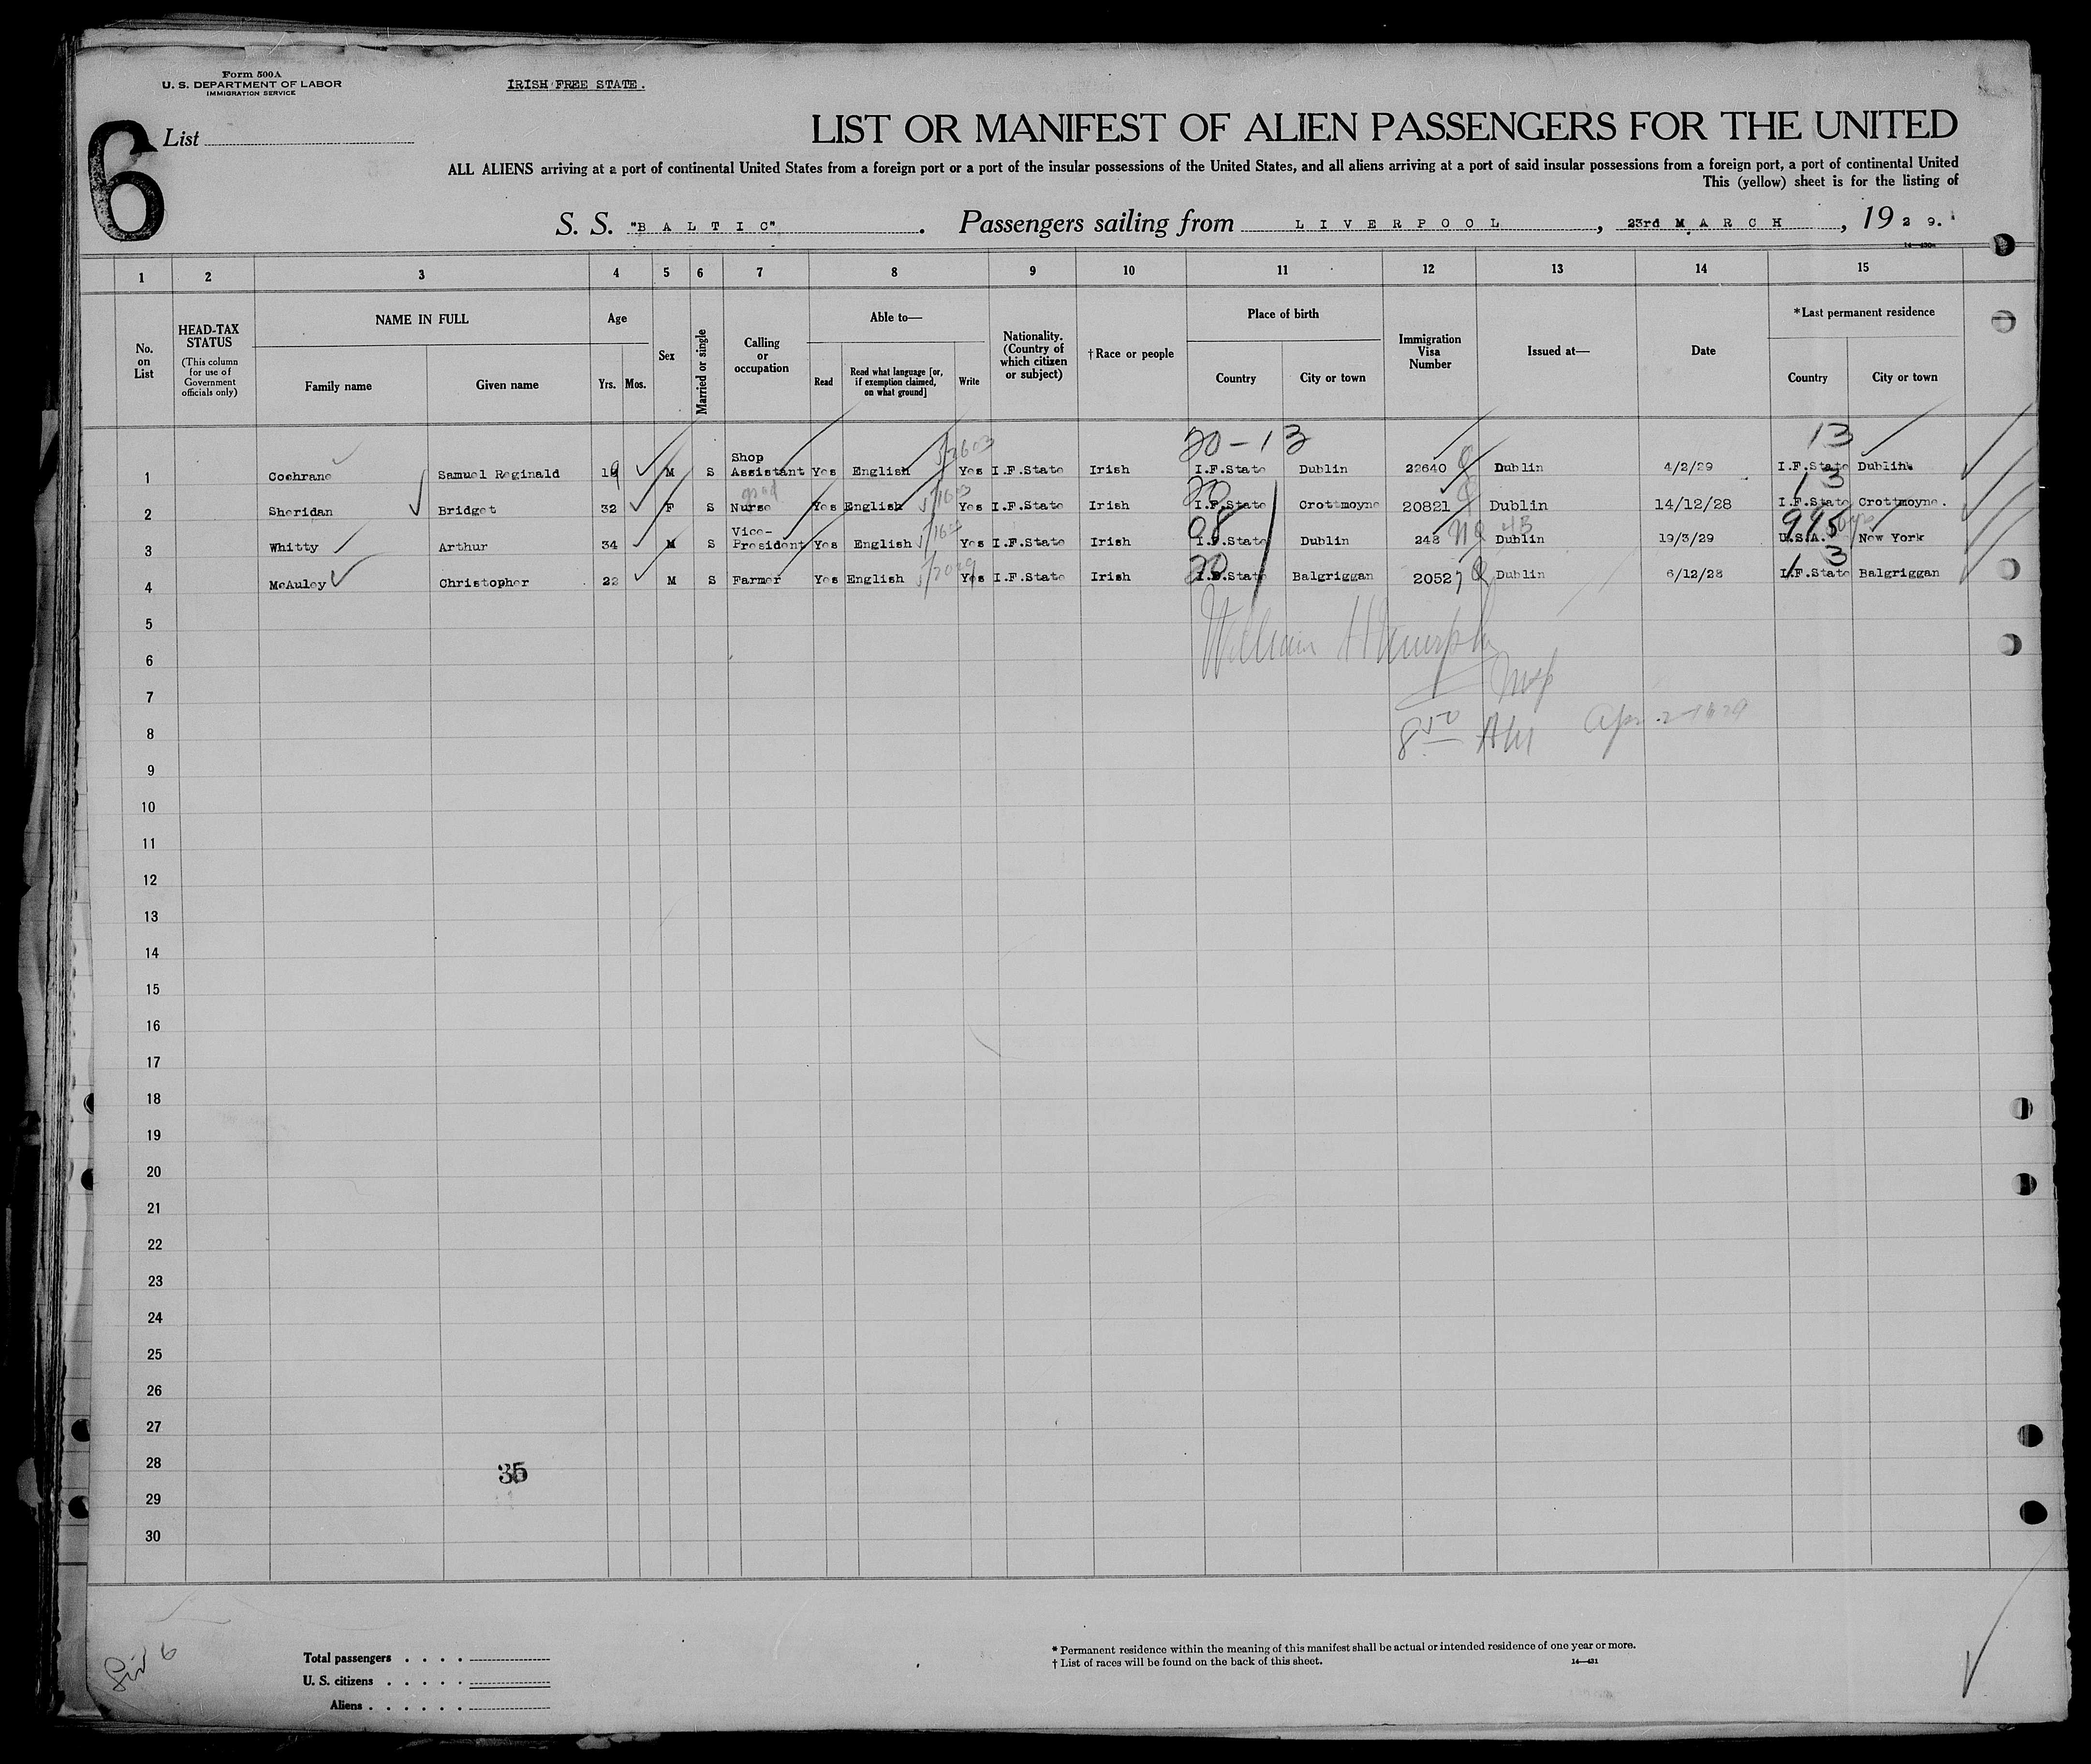 Form 500A
U. S. DEPARTMENT OF LABOR
IMMIGRATION SERVICE
IRISH FREE STATE.
6
List
LIST OR MANIFEST OF ALIEN PASSENGERS FOR THE UNITED
ALL ALIENS arriving at a port of continental United States from a foreign port or a port of the insular possessions of the United States, and all aliens arriving at a port of said insular possessions from a foreign port, a port of continental United
This (yellow) sheet is for the listing of
S. S. "BALTIC". Passengers sailing from LIVERPOOL, 23rd MARCH, 1929.
1 2 3 4 5 6 7 8 9 10 11 12 13 14 15
No. on List
HEAD-TAX STATUS
(This column for use of Government officials only)
NAME IN FULL
Family name Given name
Age
Yrs. Mos.
Sex
Married or single
Calling or occupation
Able to—
Read
Read what language [or, if exemption claimed, on what ground]
Write
Nationality. (Country of which citizen or subject)
†Race or people
Place of birth
Country City or town
Immigration Visa Number
Issued at—
Date
*Last permanent residence
Country City or town
20-13 13
1 Cochrane Samuel Reginald 19 M S Shop Assistant Yes English Yes I.F.State Irish I.F.State Dublin 22640 Dublin 4/2/29 I.F.State Dublin
20 13
2 Sheridan Bridget 32 F S Nurse Yes English Yes I.F.State Irish I.F.State Crottmoyne 20821 Dublin 14/12/28 I.F.State Crottmoyne.
3 Whitty Arthur 34 M S Vice-President Yes English Yes I.F.State Irish I.F.State Dublin 248 Dublin 19/3/29 U.S.A. New York
20 13
4 McAuley Christopher 22 M S Farmer Yes English Yes I.F.State Irish I.F.State Balgriggan 20527 Dublin 6/12/28 I.F.State Balgriggan
5
William H Murphy
6
Insp
7
8 50 AM Apr 2-1929
8
9
10
11
12
13
14
15
16
17
18
19
20
21
22
23
24
25
26
27
28
35
29
30
Total passengers
U. S. citizens
Aliens
* Permanent residence within the meaning of this manifest shall be actual or intended residence of one year or more.
† List of races will be found on the back of this sheet.
14—431